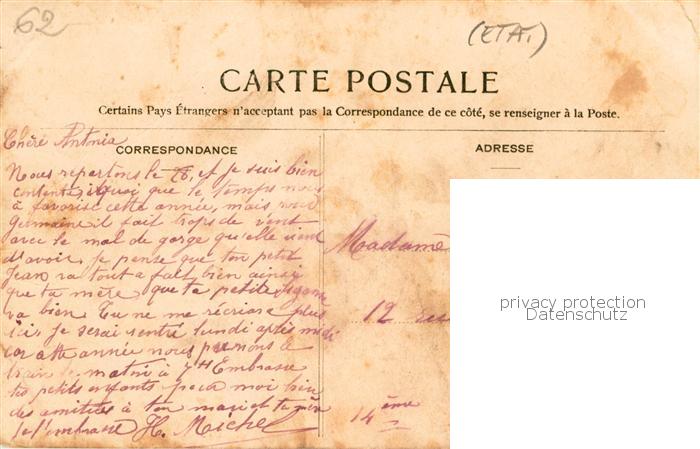 62
(ETA.)
CARTE POSTALE
Certains Pays Étrangers n'acceptant pas la Correspondance de ce côté, se renseigner à la Poste.
Chère Antonia
CORRESPONDANCE
ADRESSE
Nous repartons le et je suis bien
contente quoi que le temps nous
a favorisé cette année, mais pour
Germaine il fait trops de vent
avec le mal de gorge qu'elle vient
d'avoir. je pense que ton petit
Jean va tout a fait bien ainsi
que ta mère que ta petite
va bien Tu ne me récriras plus
ici, je serai rentré lundi après midi
car cette année nous prenons le
train le matin à 7h Embrasse
tes petits enfants pour moi bien
des amitiés à ton mari et ta mère
Je t'embrasse H. Michel
Madame
12 rue
14ème
privacy protection
Datenschutz